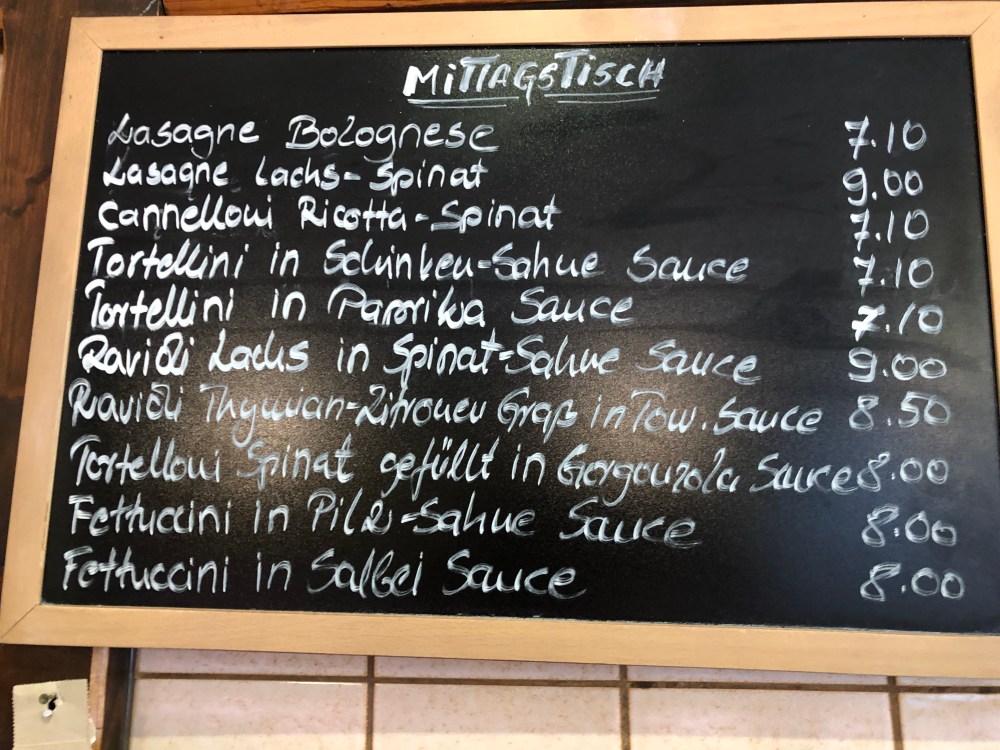 MITTAGSTISCH
Lasagne Bolognese 7.10
Lasagne Lachs-Spinat 9.00
Cannelloni Ricotta-Spinat 7.10
Tortellini in Schinken-Sahne Sauce 7.10
Tortellini in Paprika Sauce 7.10
Ravioli Lachs in Spinat-Sahne Sauce 9.00
Ravioli Thymian-Zitronen Graß in Tom. Sauce 8.50
Tortelloni Spinat gefüllt in Gorgonzola Sauce 8.00
Fettuccini in Pilz-Sahne Sauce 8.00
Fettuccini in Salbei Sauce 8.00